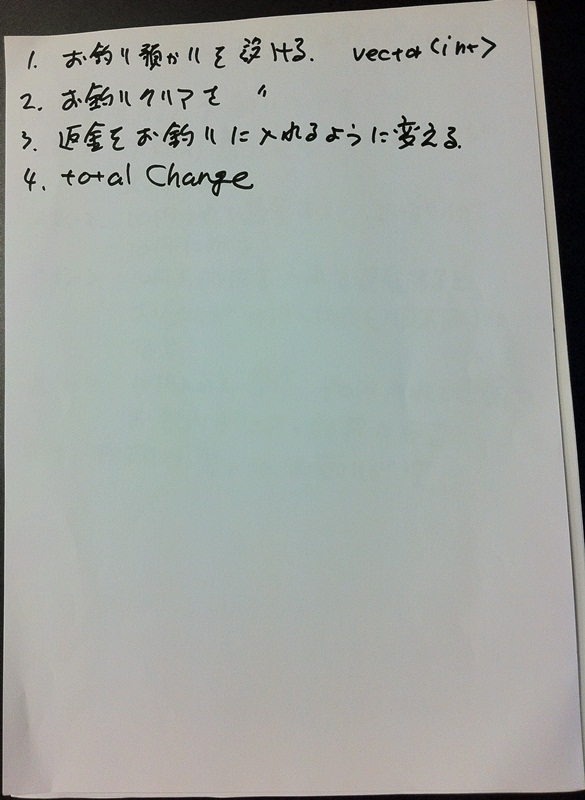 1. お釣り預かりを設ける. vector<int>
2. お釣りクリアを 〃
3. 返金をお釣りに入れるように変える.
4. total Change